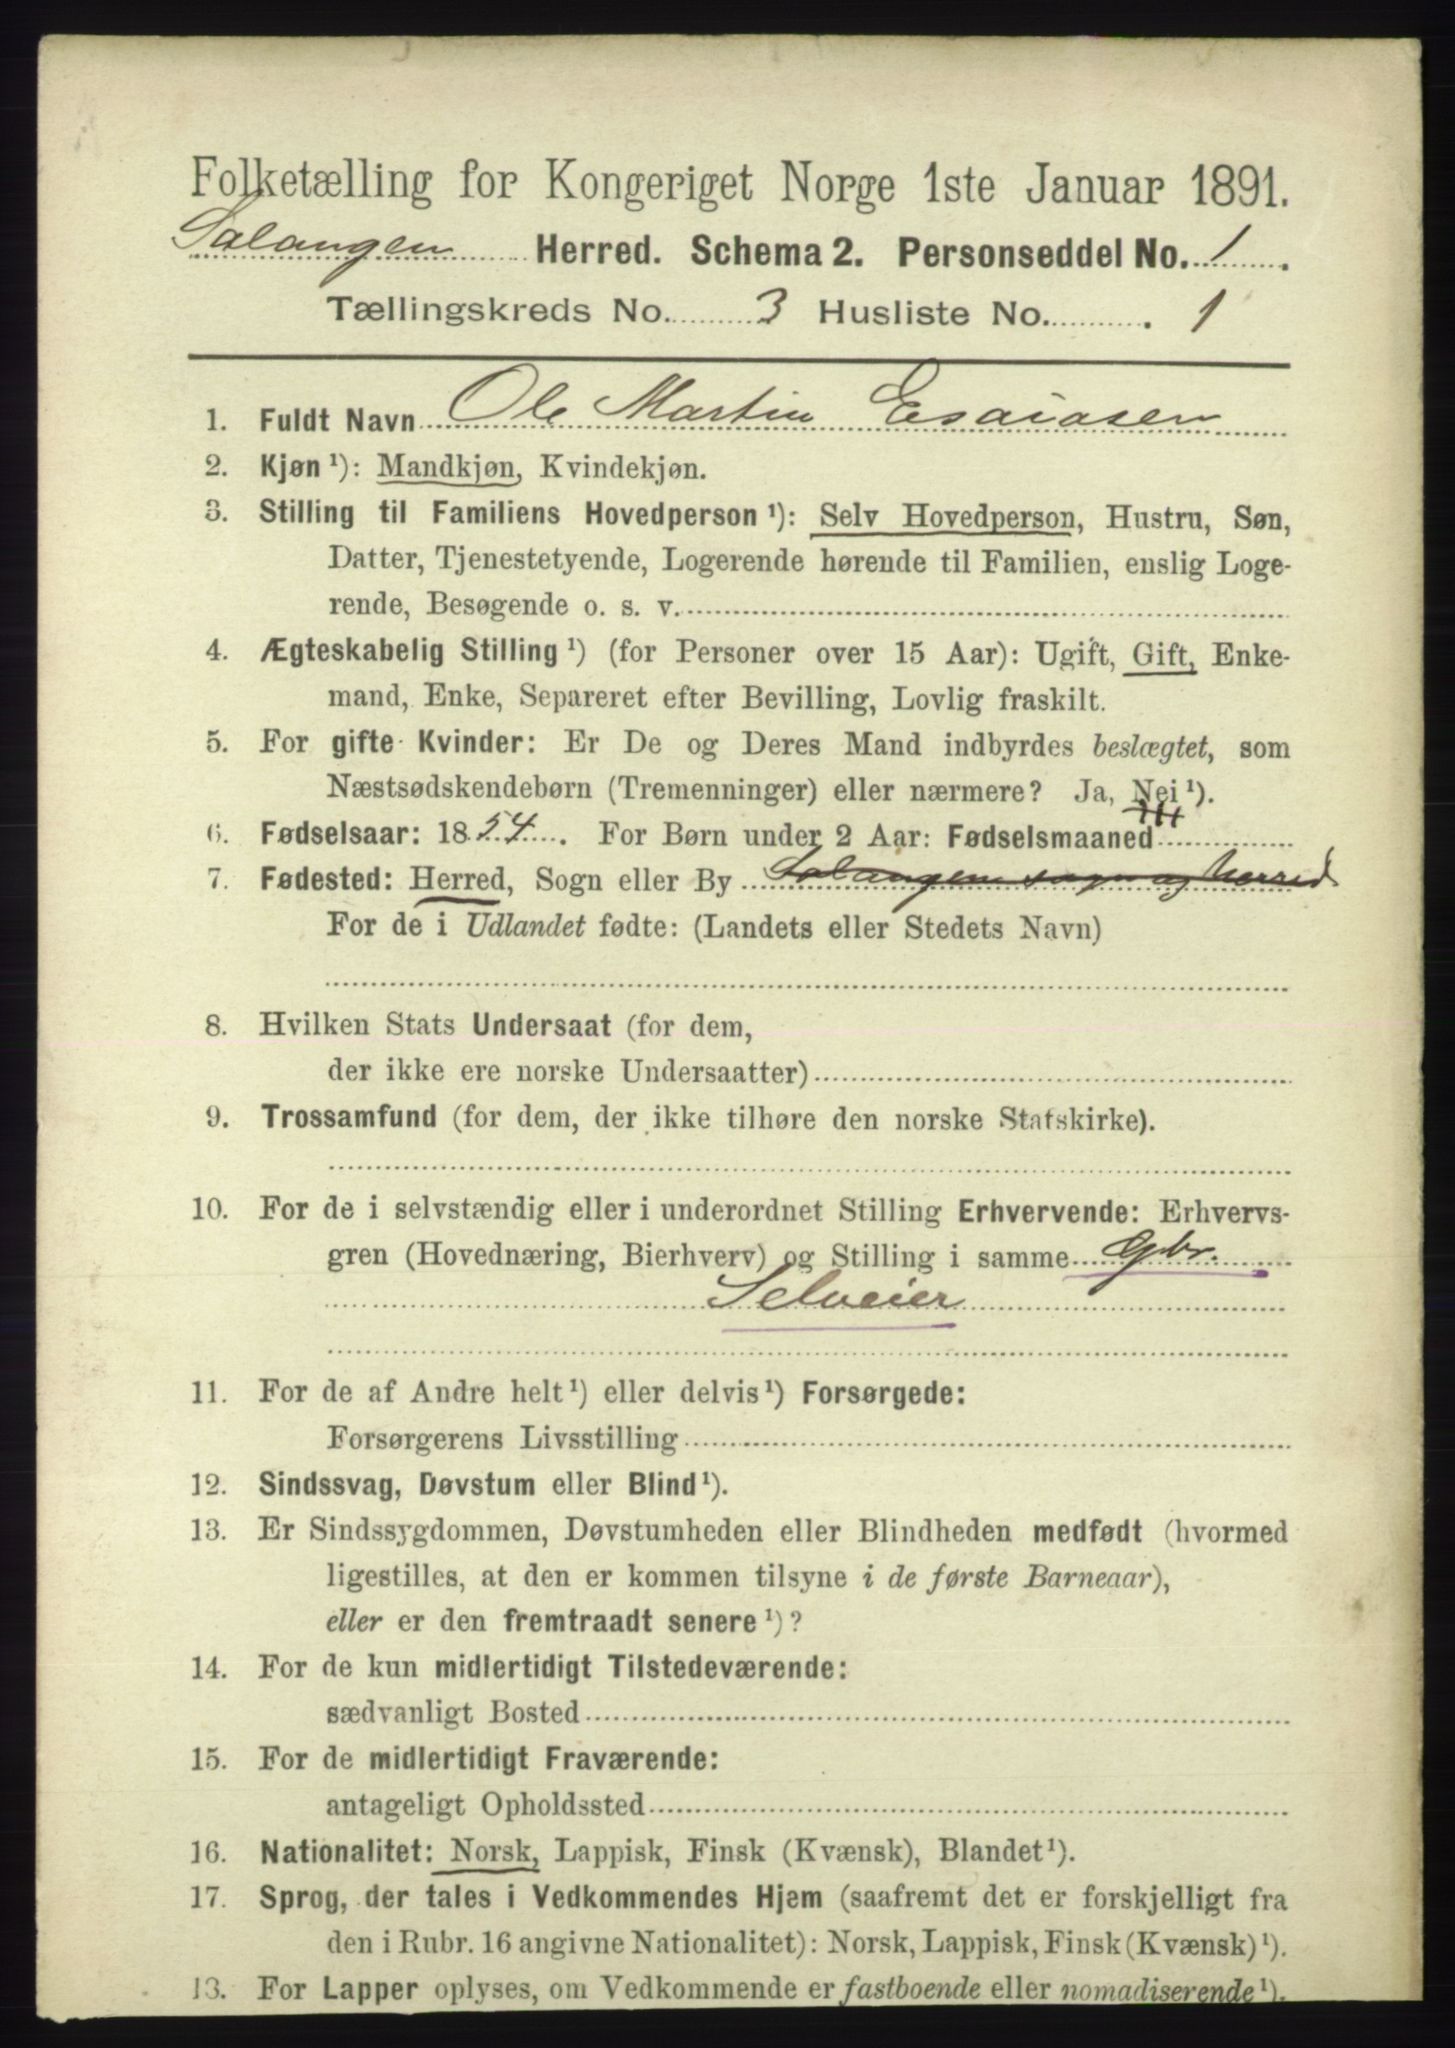 Folketælling for Kongeriget Norge 1ste Januar 1891.
Salangen Herred. Schema 2. Personseddel No. 1.
Tællingskreds No. 3 Husliste No. 1
1. Fuldt Navn Ole Martin Esaiasen
2. Kjøn ¹): Mandkjøn, Kvindekjøn.
3. Stilling til Familiens Hovedperson ¹): Selv Hovedperson, Hustru, Søn,
Datter, Tjenestetyende, Logerende hørende til Familien, enslig Loge-
rende, Besøgende o. s. v.
4. Ægteskabelig Stilling ¹) (for Personer over 15 Aar): Ugift, Gift, Enke-
mand, Enke, Separeret efter Bevilling, Lovlig fraskilt.
5. For gifte Kvinder: Er De og Deres Mand indbyrdes beslægtet, som
Næstsødskendebørn (Tremenninger) eller nærmere? Ja, Nei ¹).
6. Fødselsaar: 1854. For Børn under 2 Aar: Fødselsmaaned
7. Fødested: Herred, Sogn eller By Salangen sogn og herred
For de i Udlandet fødte: (Landets eller Stedets Navn)
8. Hvilken Stats Undersaat (for dem,
der ikke ere norske Undersaatter)
9. Trossamfund (for dem, der ikke tilhøre den norske Statskirke).
10. For de i selvstændig eller i underordnet Stilling Erhvervende: Erhvervs-
gren (Hovednæring, Bierhverv) og Stilling i samme Gbr.
Selveier
11. For de af Andre helt ¹) eller delvis ¹) Forsørgede:
Forsørgerens Livsstilling
12. Sindssvag, Døvstum eller Blind ¹).
13. Er Sindssygdommen, Døvstumheden eller Blindheden medfødt (hvormed
ligestilles, at den er kommen tilsyne i de første Barneaar),
eller er den fremtraadt senere ¹)?
14. For de kun midlertidigt Tilstedeværende:
sædvanligt Bosted
15. For de midlertidigt Fraværende:
antageligt Opholdssted
16. Nationalitet: Norsk, Lappisk, Finsk (Kvænsk), Blandet ¹).
17. Sprog, der tales i Vedkommendes Hjem (saafremt det er forskjelligt fra
den i Rubr. 16 angivne Nationalitet): Norsk, Lappisk, Finsk (Kvænsk) ¹).
13. For Lapper oplyses, om Vedkommende er fastboende eller nomadiserende ¹).